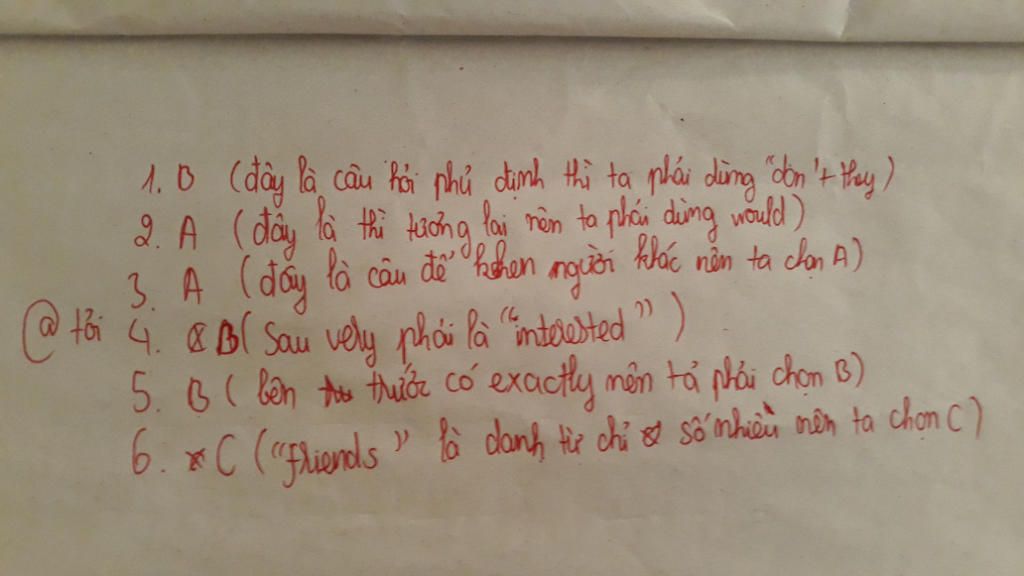 1. B (đây là câu hỏi phủ định thì ta phải dùng "don't + they)
2. A (đây là thì tương lai nên ta phải dùng would)
3. A (đây là câu để khen người khác nên ta chọn A)
@ tôi 4. B (Sau very phải là "interested")
5. B (bên trước có exactly nên ta phải chọn B)
6. C ("friends" là danh từ chỉ số nhiều nên ta chọn C)